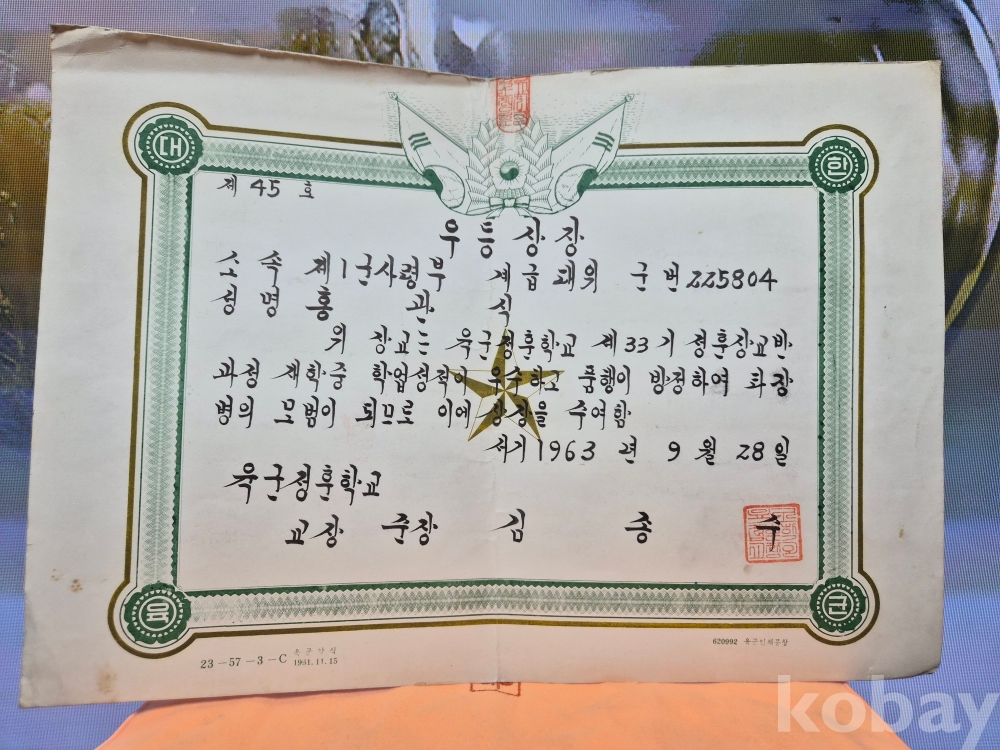 대 한
제 45 호
우등상장
소속 제1군사령부 계급 대위 군번 225804
성명 홍 관 식
위 장교는 육군정훈학교 제33기 정훈장교반
과정 재학중 학업성적이 우수하고 품행이 방정하여 화장
병의 모범이 되므로 이에 상장을 수여함
서기 1963년 9월 28일
육군정훈학교
교장 준장 김 종 수
육 군
23-57-3-C 육군양식 1961.11.15
620992 육군인쇄공창
kobay